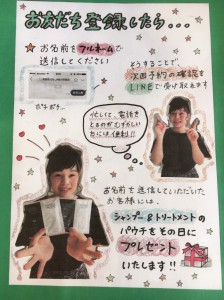 お友だち登録したら...
お名前をフルネームで
送信してください
ポチポチ...
そうすることで、
次回予約の確認を
LINEで受け取れます
忙しくて、電話を
えるのがむずかしい
方には便利!!
お名前を送信していただいた
お客様には、
シャンプー&トリートメントの
パウチをその日に
プレゼント
いたします!!